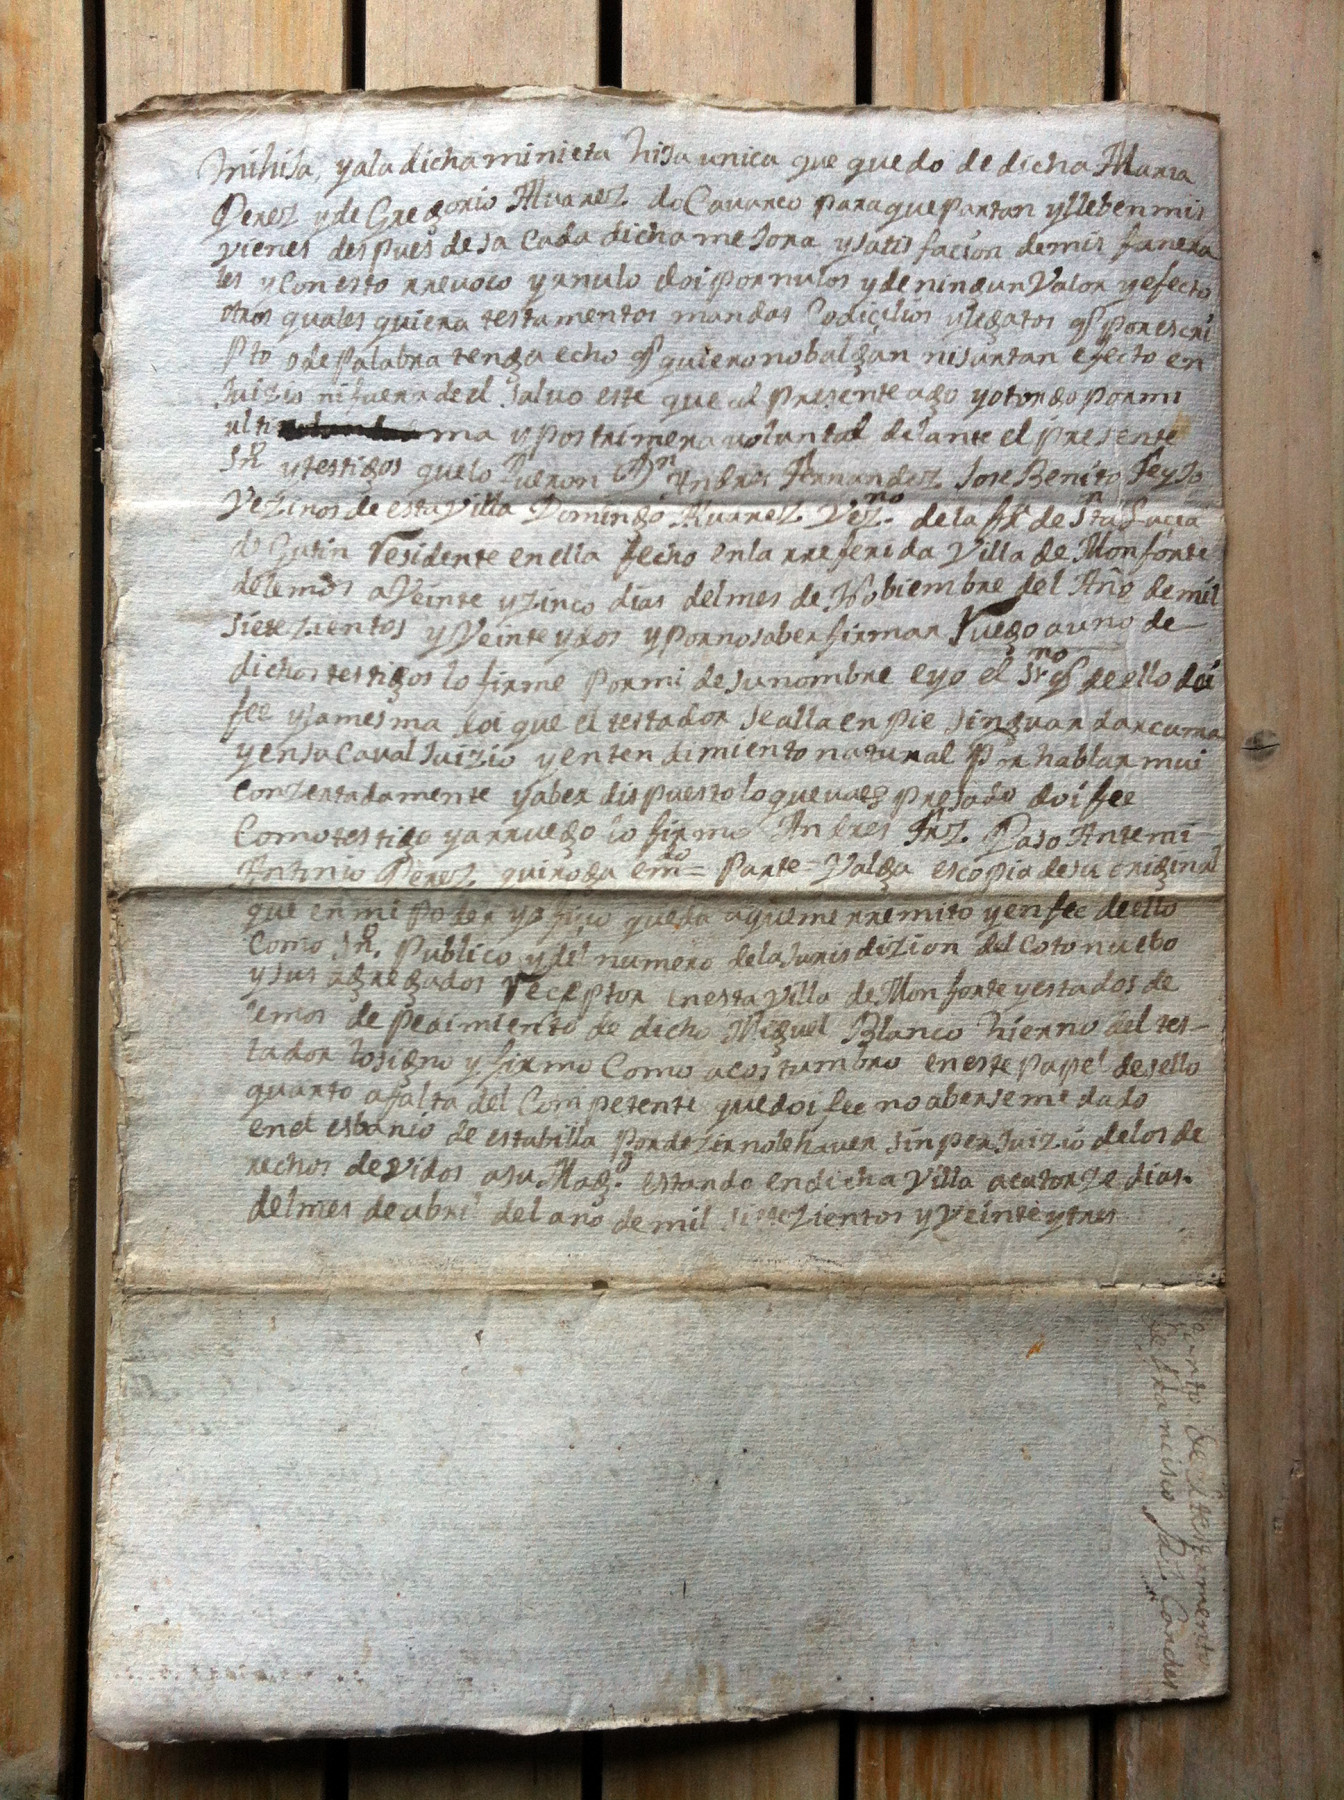 mi hija, y a la dicha mi nieta hija unica que quedo de dicha Maria
Perez y de Gregorio Alvarez do Cavarco para que partan y lleben mis
vienes despues de sacada dicha mejora y satisfacion de mis funera
les y con esto rrevoco y anulo doi por nulos y de ningun Valor y efecto
otros quales quiera testamentos mandas Codicilios y legatos q̃ por escri
pto o de palabra tenga echo q̃ quiero no balgan ni surtan efecto en
Juizio ni fuera de el salvo este que al presente ago y otorgo por mi
ulti ma y postrimera voluntad delante el presente
Sno y testigos que lo fueron Dn Andres Fernandez Jose Benito Feyjo
Vezinos de esta Villa Domingo Alvarez Vezno. de la fra de Sta Lucia
de Gutin Residente en ella fecho en la rreferida Villa de Monforte
de lemos a Veinte y zinco dias del mes de Nobiembre del Año de mil
siete zientos y Veinte y dos y por no saber firmar Ruego a uno de
dichos testigos lo firme por mi de su nombre e yo el Srno q̃ de ello doi
fee y lamesma doi que el testador se alla en pie sin guardar cama
y en su Caval Juizio y entendimiento natural por hablar mui
conzertadamente y aber dispuesto lo que va espresado doi fee
Como testigo y a rruego lo firmo Andres Frz. Paso Ante mi
Antinio Perez quiroga emdo = Parte = Valga es copia de su original
que en mi poder y ofizio queda a que me rremito y en fee de ello
Como Sno. Publico y del numero de la Jurisdizion del Coto nuebo
y sus agregados Receptor en esta Villa de Monforte y estados de
lemos de pedimiento de dicho Miguel Blanco hierno del tes-
tador lo signo y firmo Como acostumbro en este papel de sello
quarto a falta del Competente que doi fee no aberseme dado
en el estanio de esta billa por dezir no le haver sin perjuizio de los de
rechos devidos a su Magd. estando en dicha Villa a catorze dias.
del mes de abril del año de mil siete zientos y Veinte y tres
de el testamento
de Francisco Pas Candes